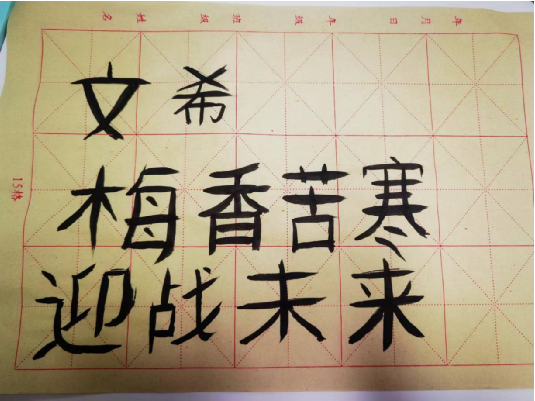 年 月 日 年 级 班 级 姓 名
文 希
梅香苦寒
迎战未来
15格